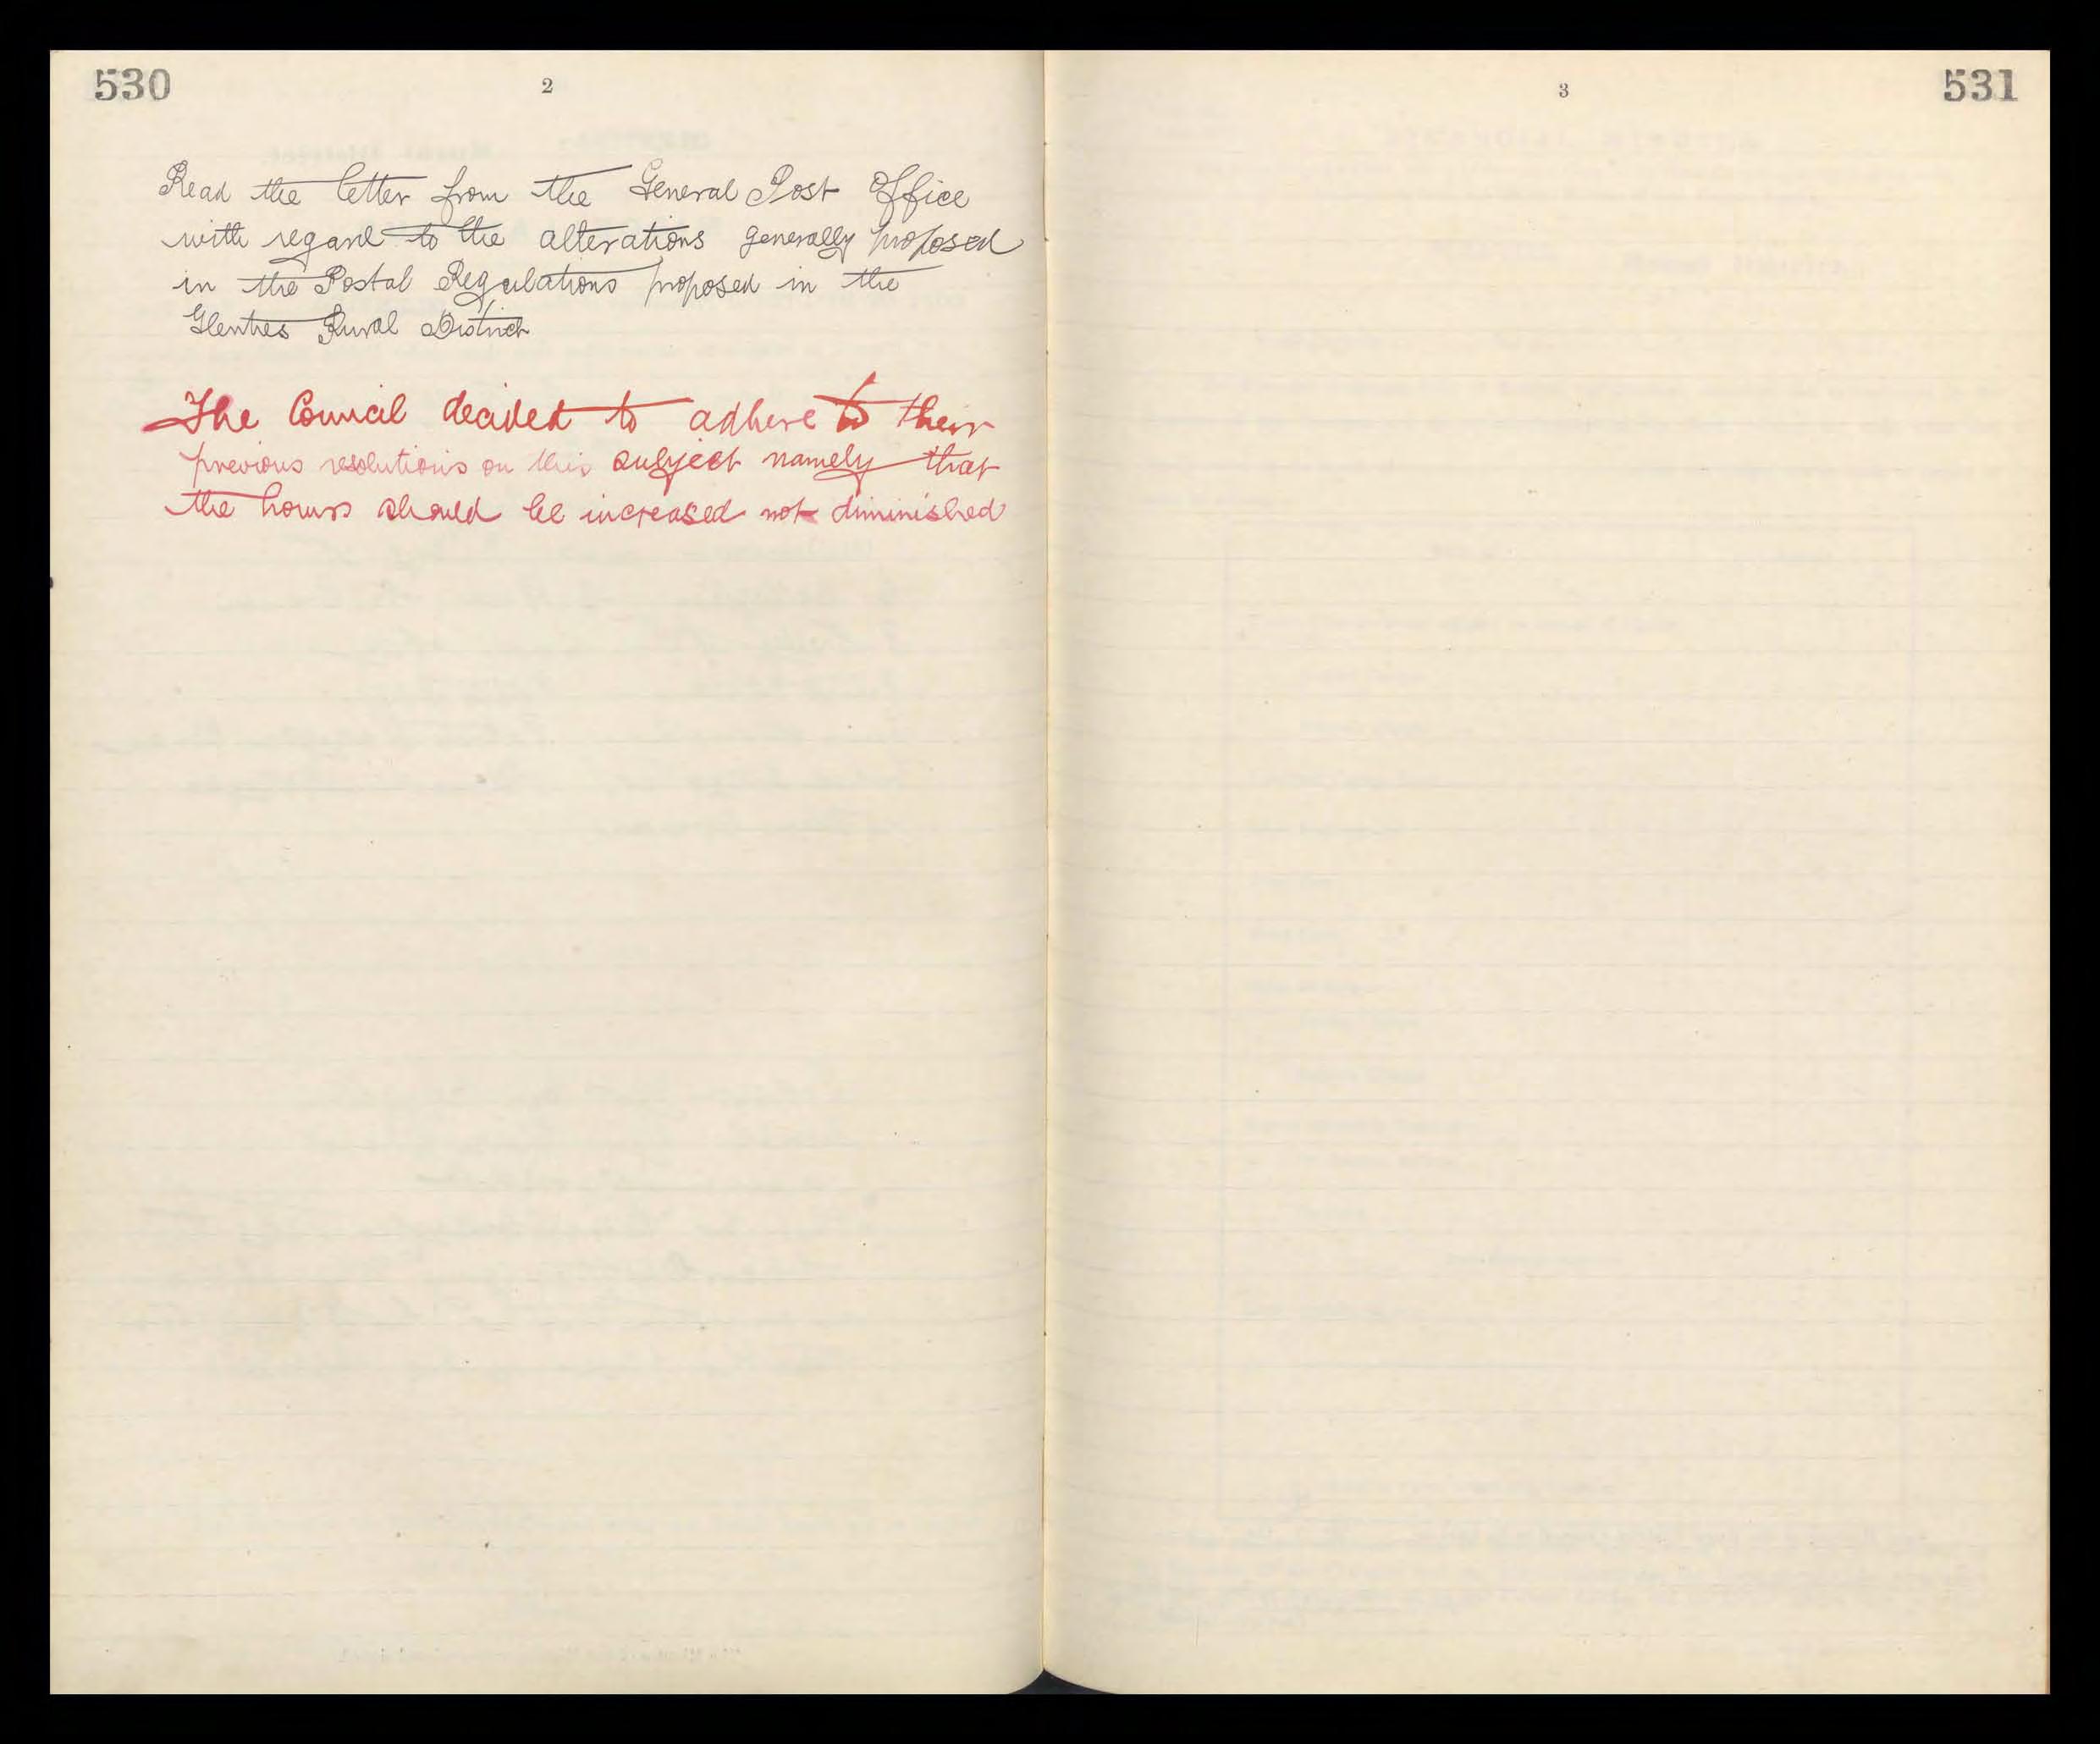 530
2
Read the letter from the General Post Office
with regard to the alterations generally proposed
in the Postal Regulations proposed in the
Glenties Rural District
The Council decided to adhere to their
previous resolutions on this subject namely that
the hours should be increased not diminished
3
531